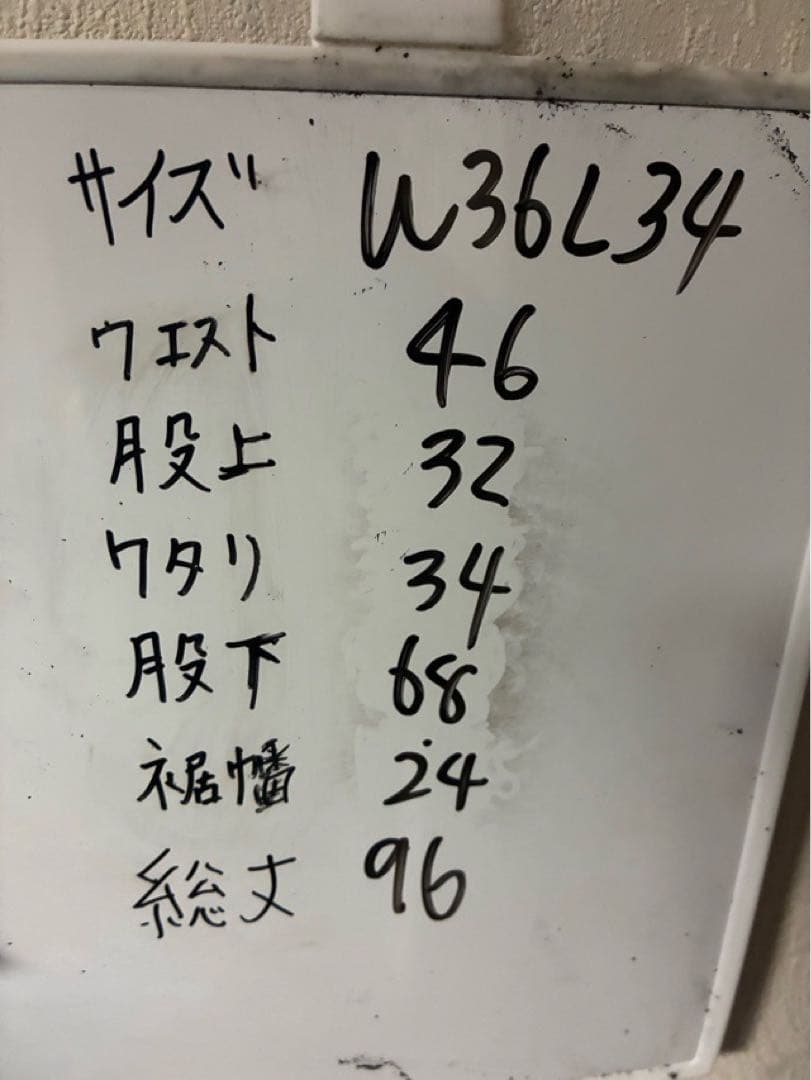 サイズ W36L34
ウエスト 46
股上 32
ワタリ 34
股下 68
裾幡 24
総丈 96